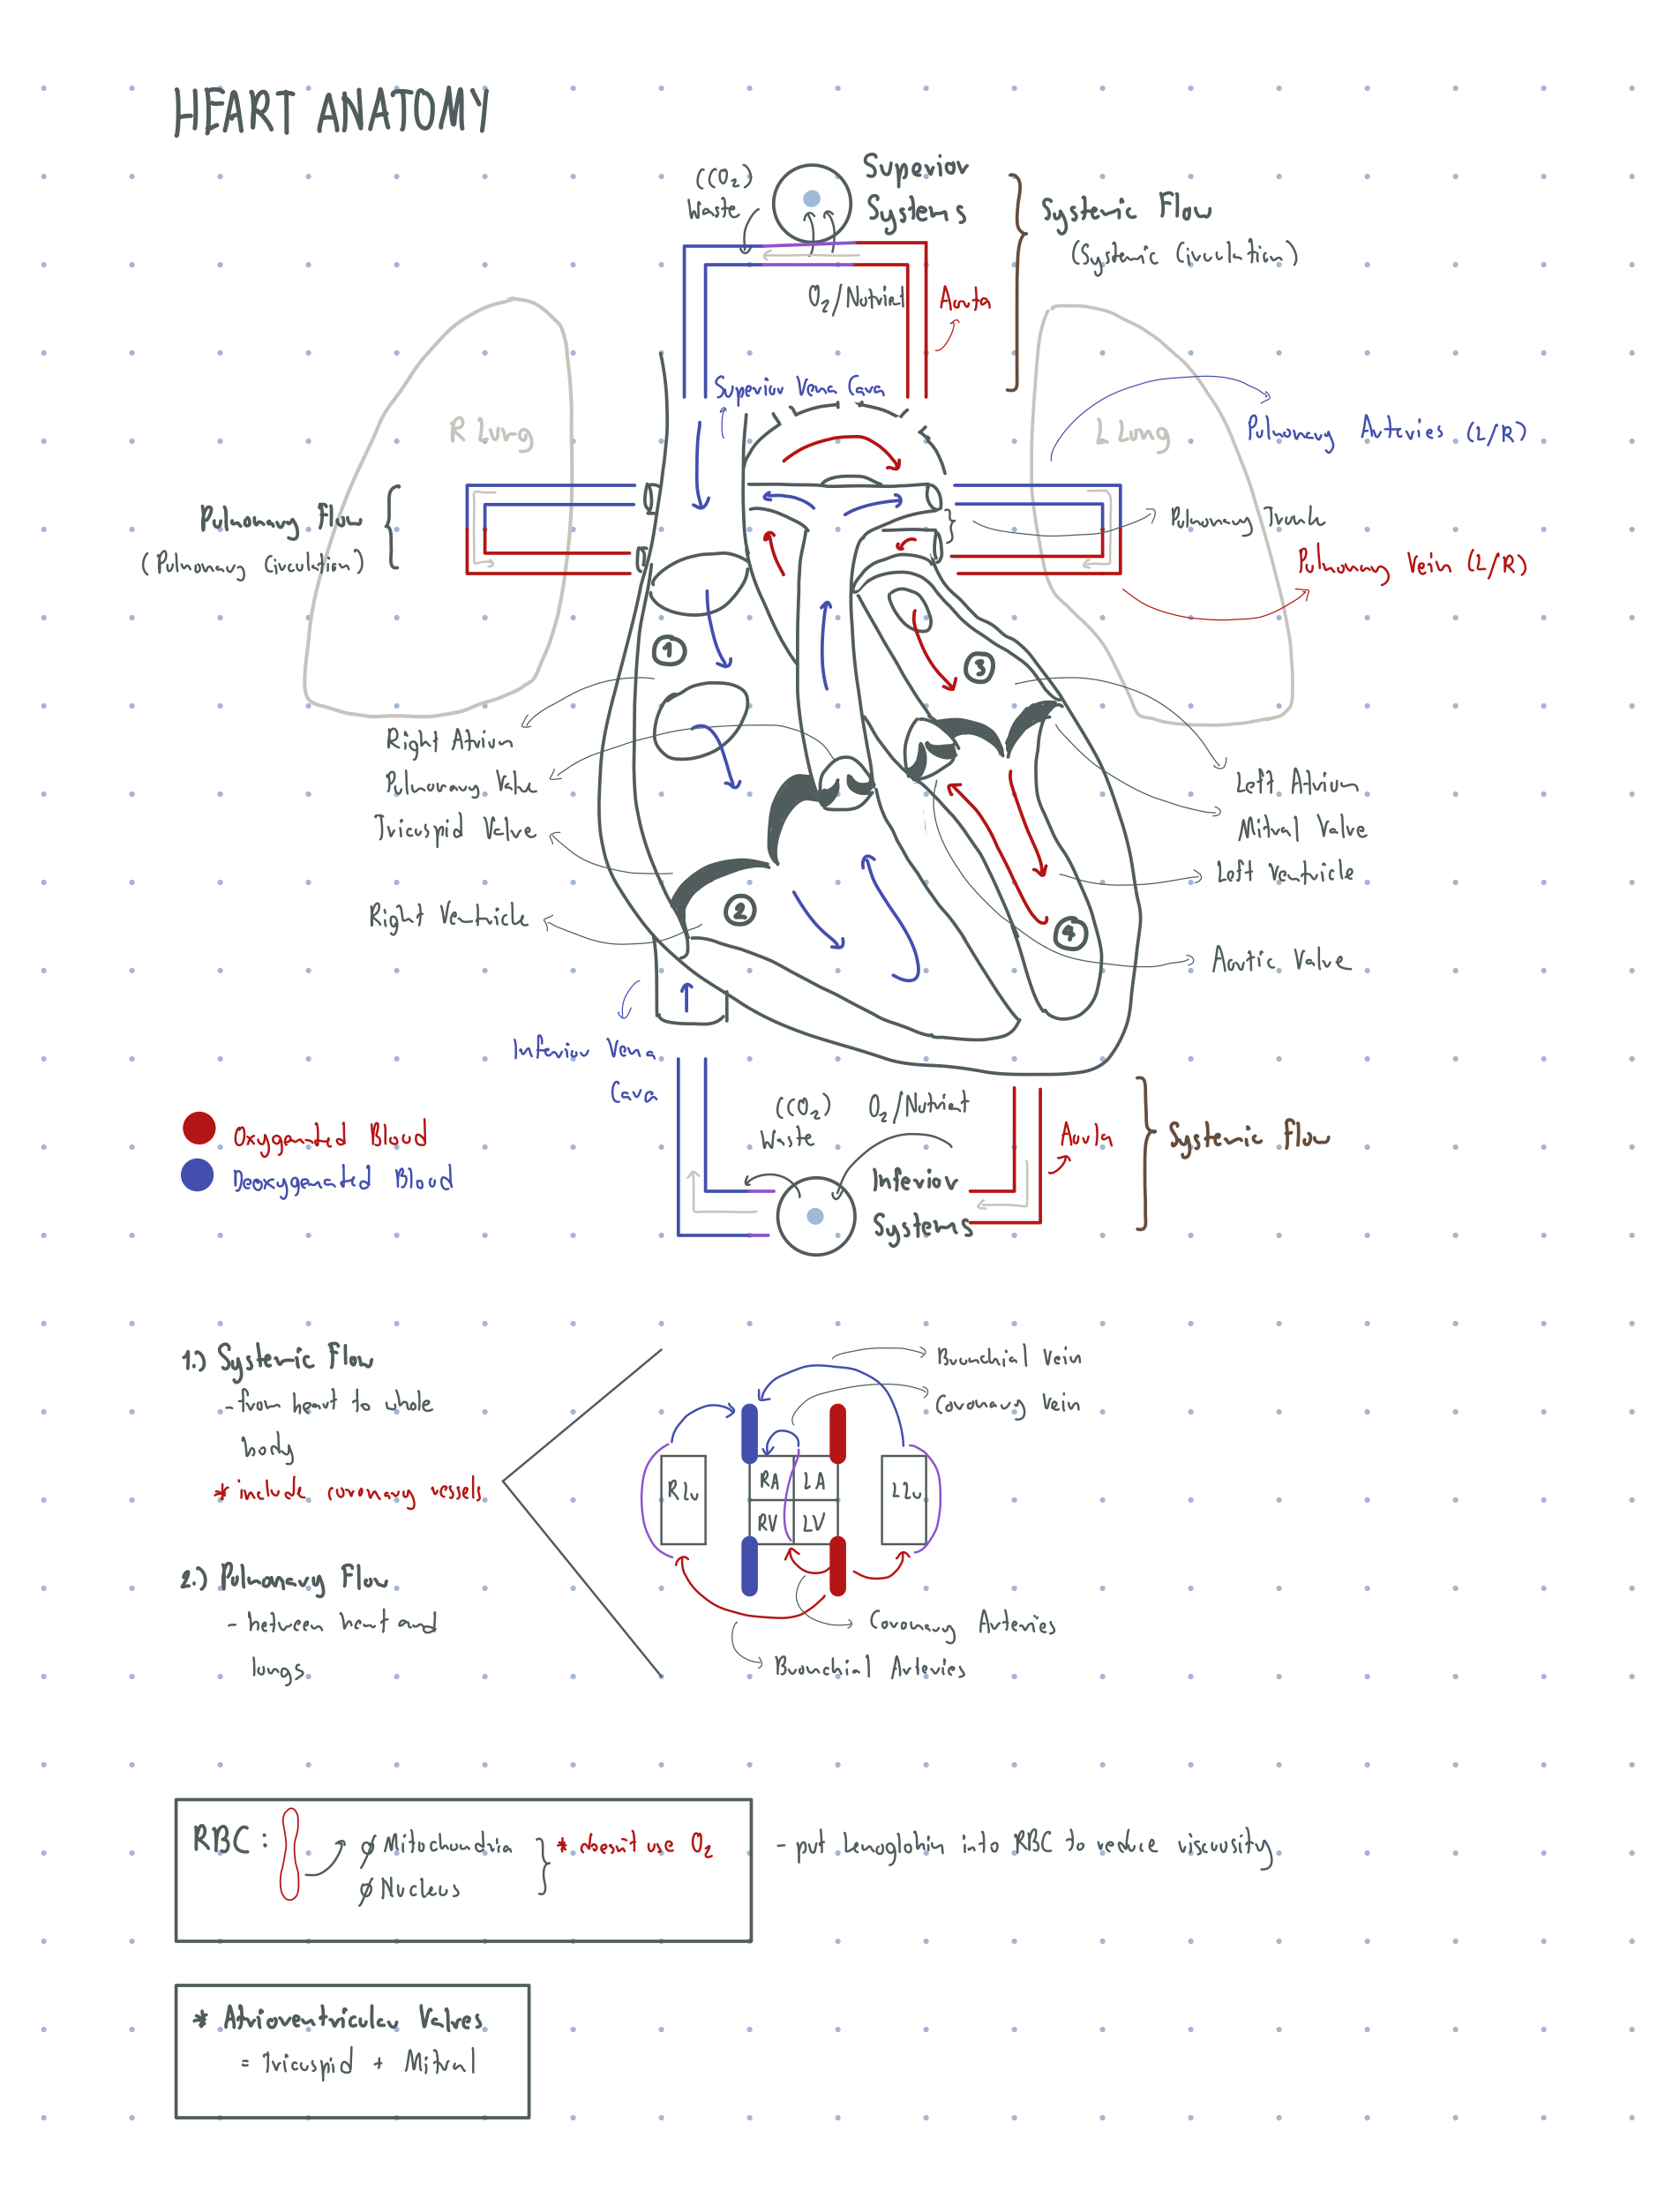 HEART ANATOMY
(CO₂)
Waste
Superior
Systems
Systemic Flow
(Systemic Circulation)
O₂/Nutrient
Aorta
Superior Vena Cava
R Lung
L Lung
Pulmonary Arteries (L/R)
Pulmonary Flow
(Pulmonary Circulation)
Pulmonary Trunk
Pulmonary Vein (L/R)
1
3
Right Atrium
Pulmonary Valve
Tricuspid Valve
Right Ventricle
2
4
Left Atrium
Mitral Valve
Left Ventricle
Aortic Valve
Inferior Vena
Cava
(CO₂)
Waste
O₂/Nutrient
Aorta
Systemic Flow
Inferior
Systems
Oxygenated Blood
Deoxygenated Blood
1.) Systemic Flow
- from heart to whole
body
* include coronary vessels
2.) Pulmonary Flow
- between heart and
lungs
Bronchial Vein
Coronary Vein
R Lu
RA
LA
L Lu
RV
LV
Coronary Arteries
Bronchial Arteries
RBC :
ø Mitochondria
ø Nucleus
* doesn't use O₂
- put hemoglobin into RBC to reduce viscousity
* Atrioventricular Valves
= Tricuspid + Mitral